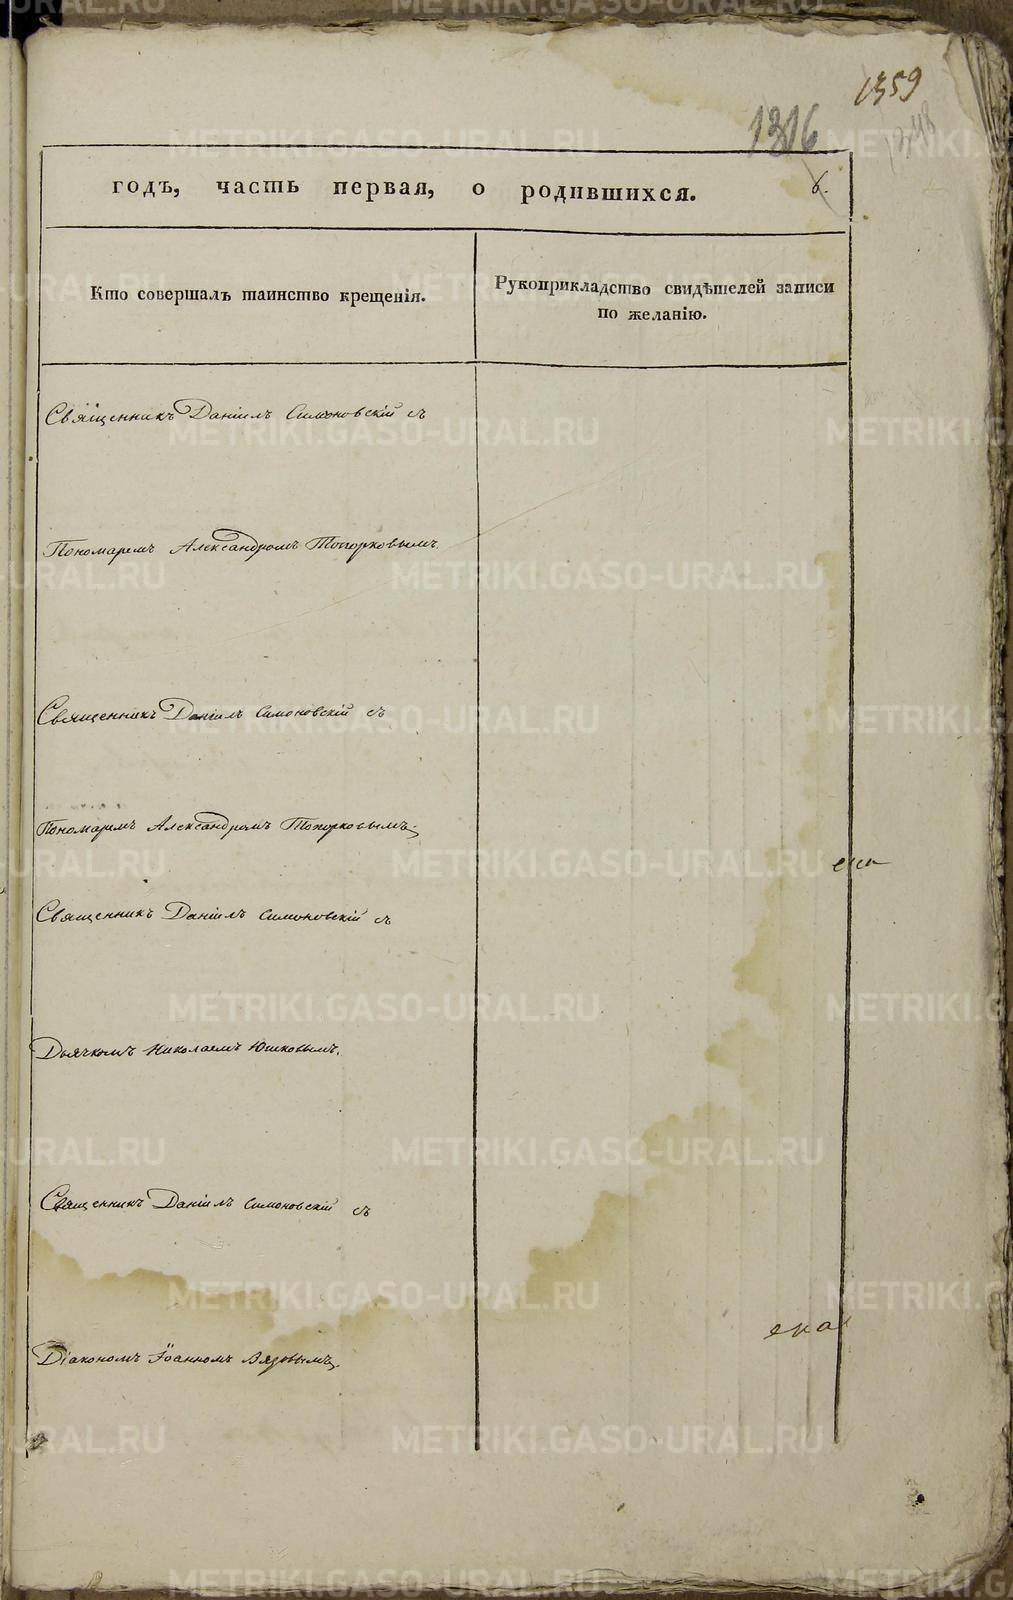 1359
1316
6.
годъ, часть первая, о родившихся.
Кто совершалъ таинство крещенія.
Рукоприкладство свидѣтелей записи
по желанію.
Священникъ Даніилъ Симоновскій съ
Пономаремъ Александромъ Топорковымъ.
Священникъ Даніилъ Симоновскій съ
Пономаремъ Александромъ Топорковымъ.
Священникъ Даніилъ Симоновскій съ
Дьячкомъ Николаемъ Юшковымъ.
Священникъ Даніилъ Симоновскій съ
ека
Діакономъ Іоанномъ Вязовымъ.
METRIKI.GASO-URAL.RU